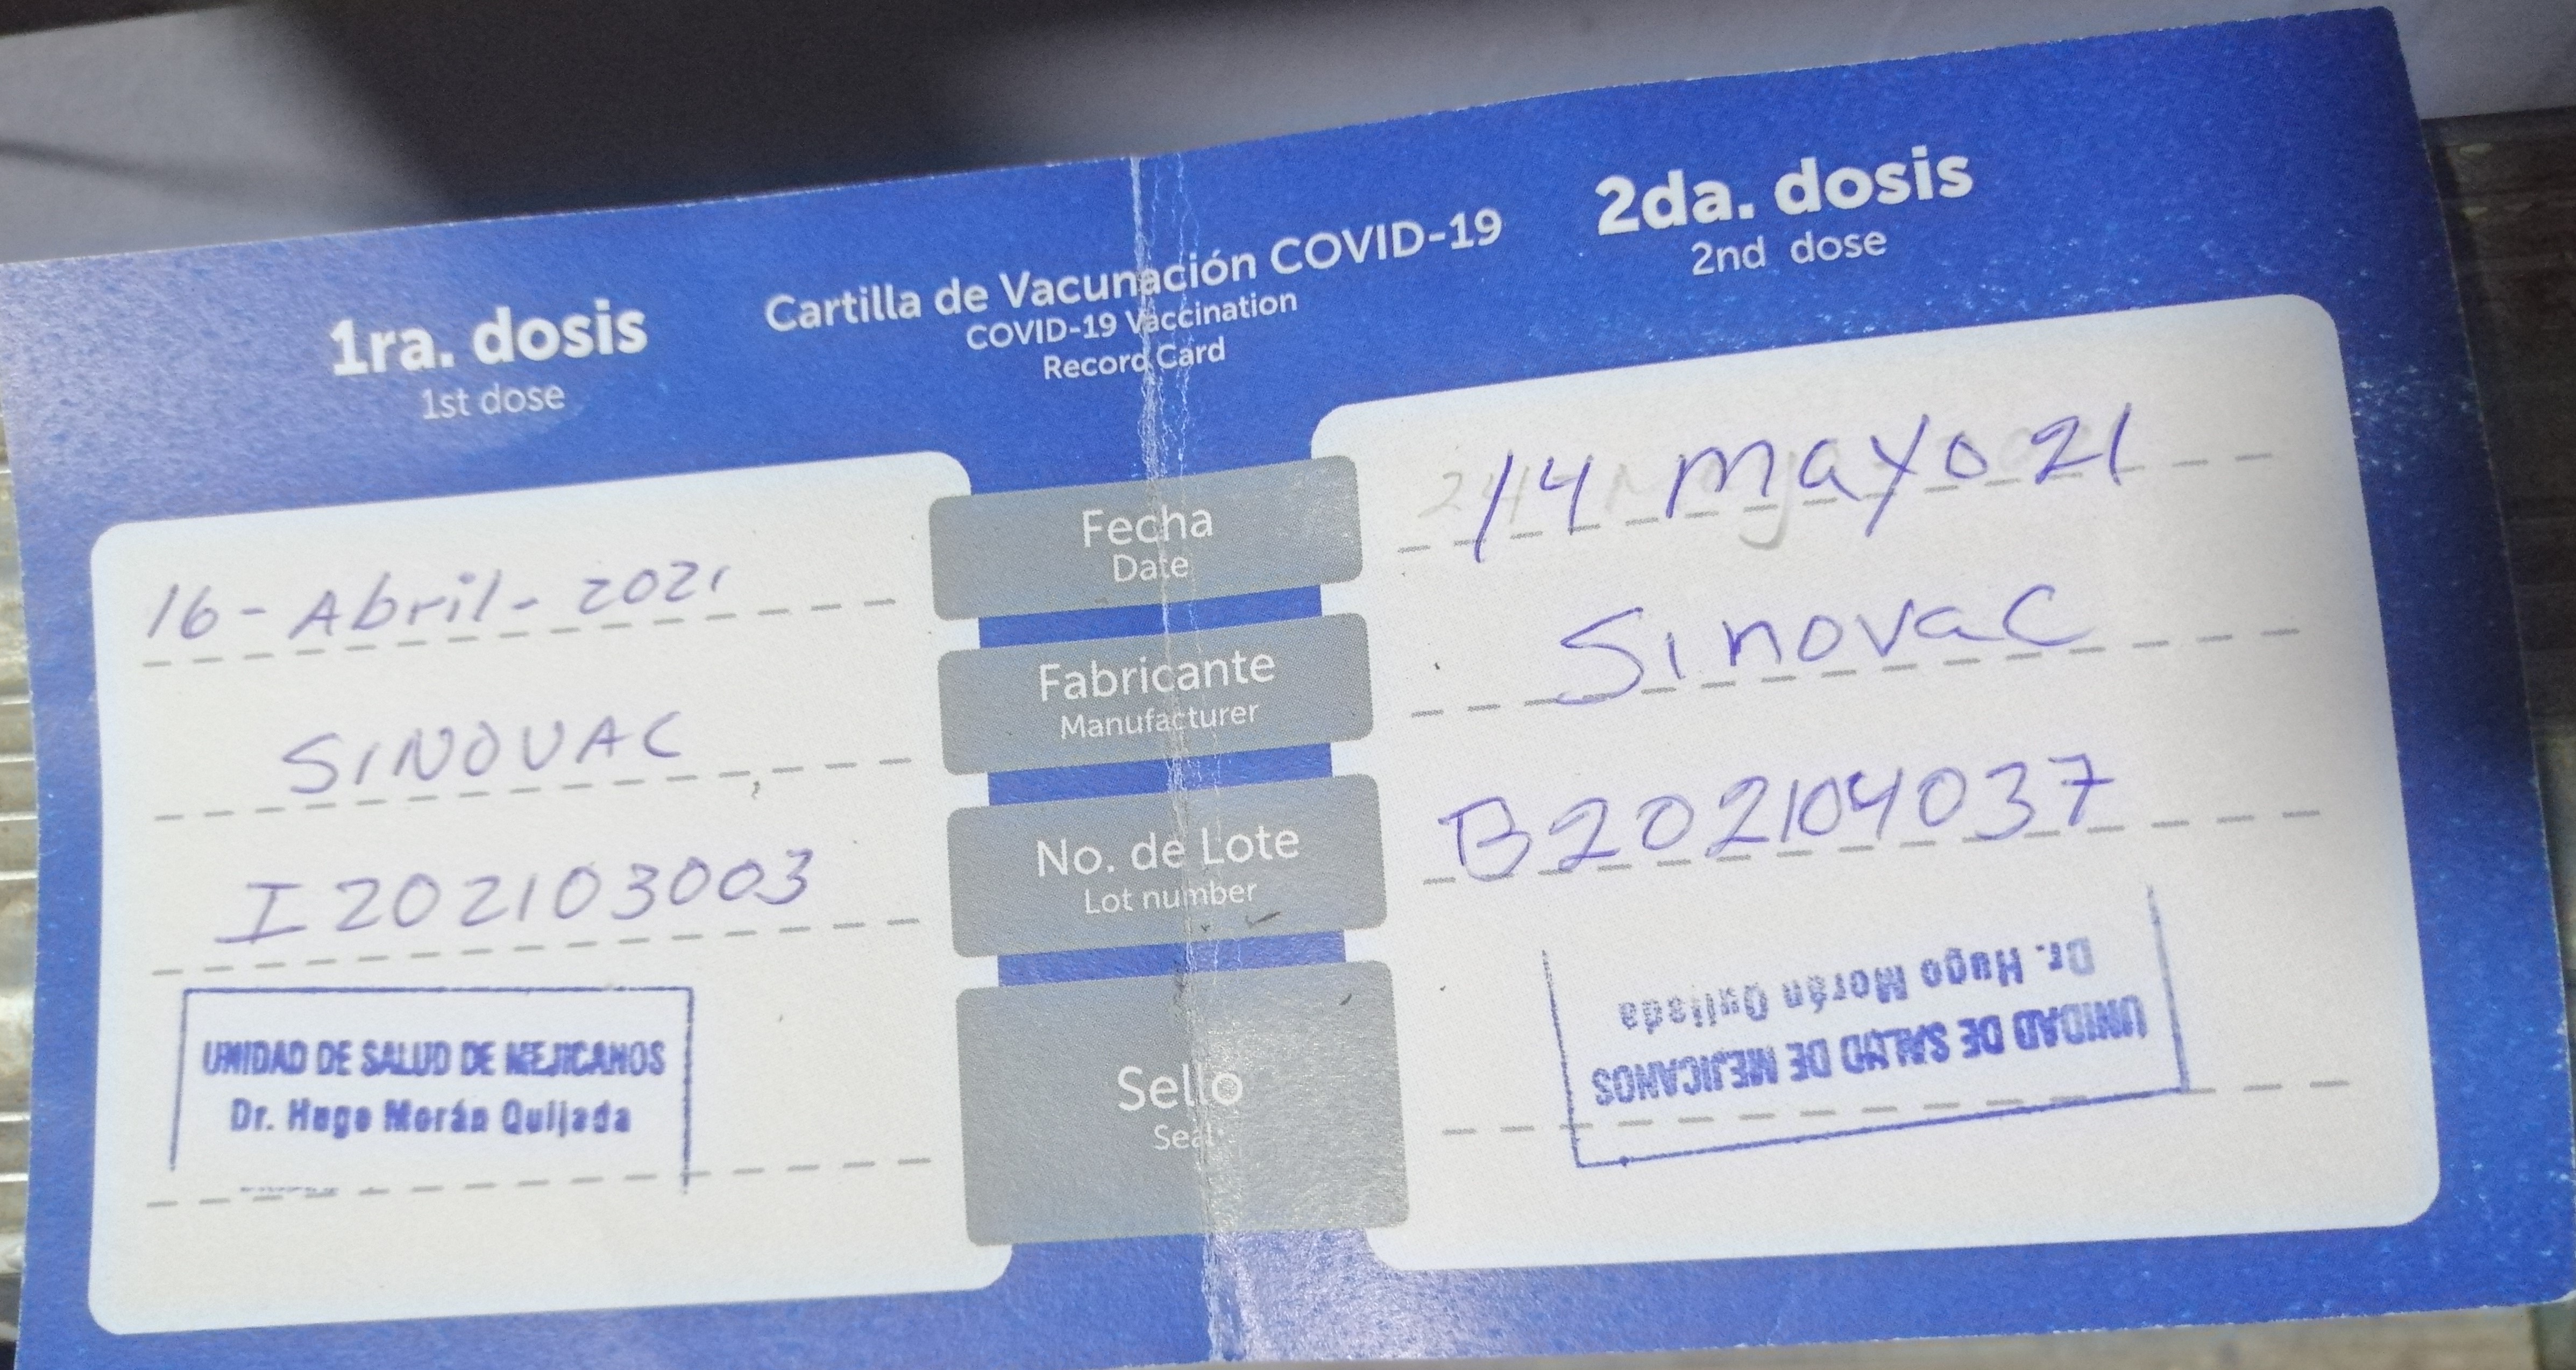 Cartilla de Vacunación COVID-19
COVID-19 Vaccination
Record Card
1ra. dosis
1st dose
2da. dosis
2nd dose
16-Abril-2021
Fecha
Date
14 mayo 21
SINOVAC
Fabricante
Manufacturer
Sinovac
I202103003
No. de Lote
Lot number
B202104037
UNIDAD DE SALUD DE MEJICANOS
Dr. Hugo Morán Quijada
Sello
Seal
UNIDAD DE SALUD DE MEJICANOS
Dr. Hugo Morán Quijada